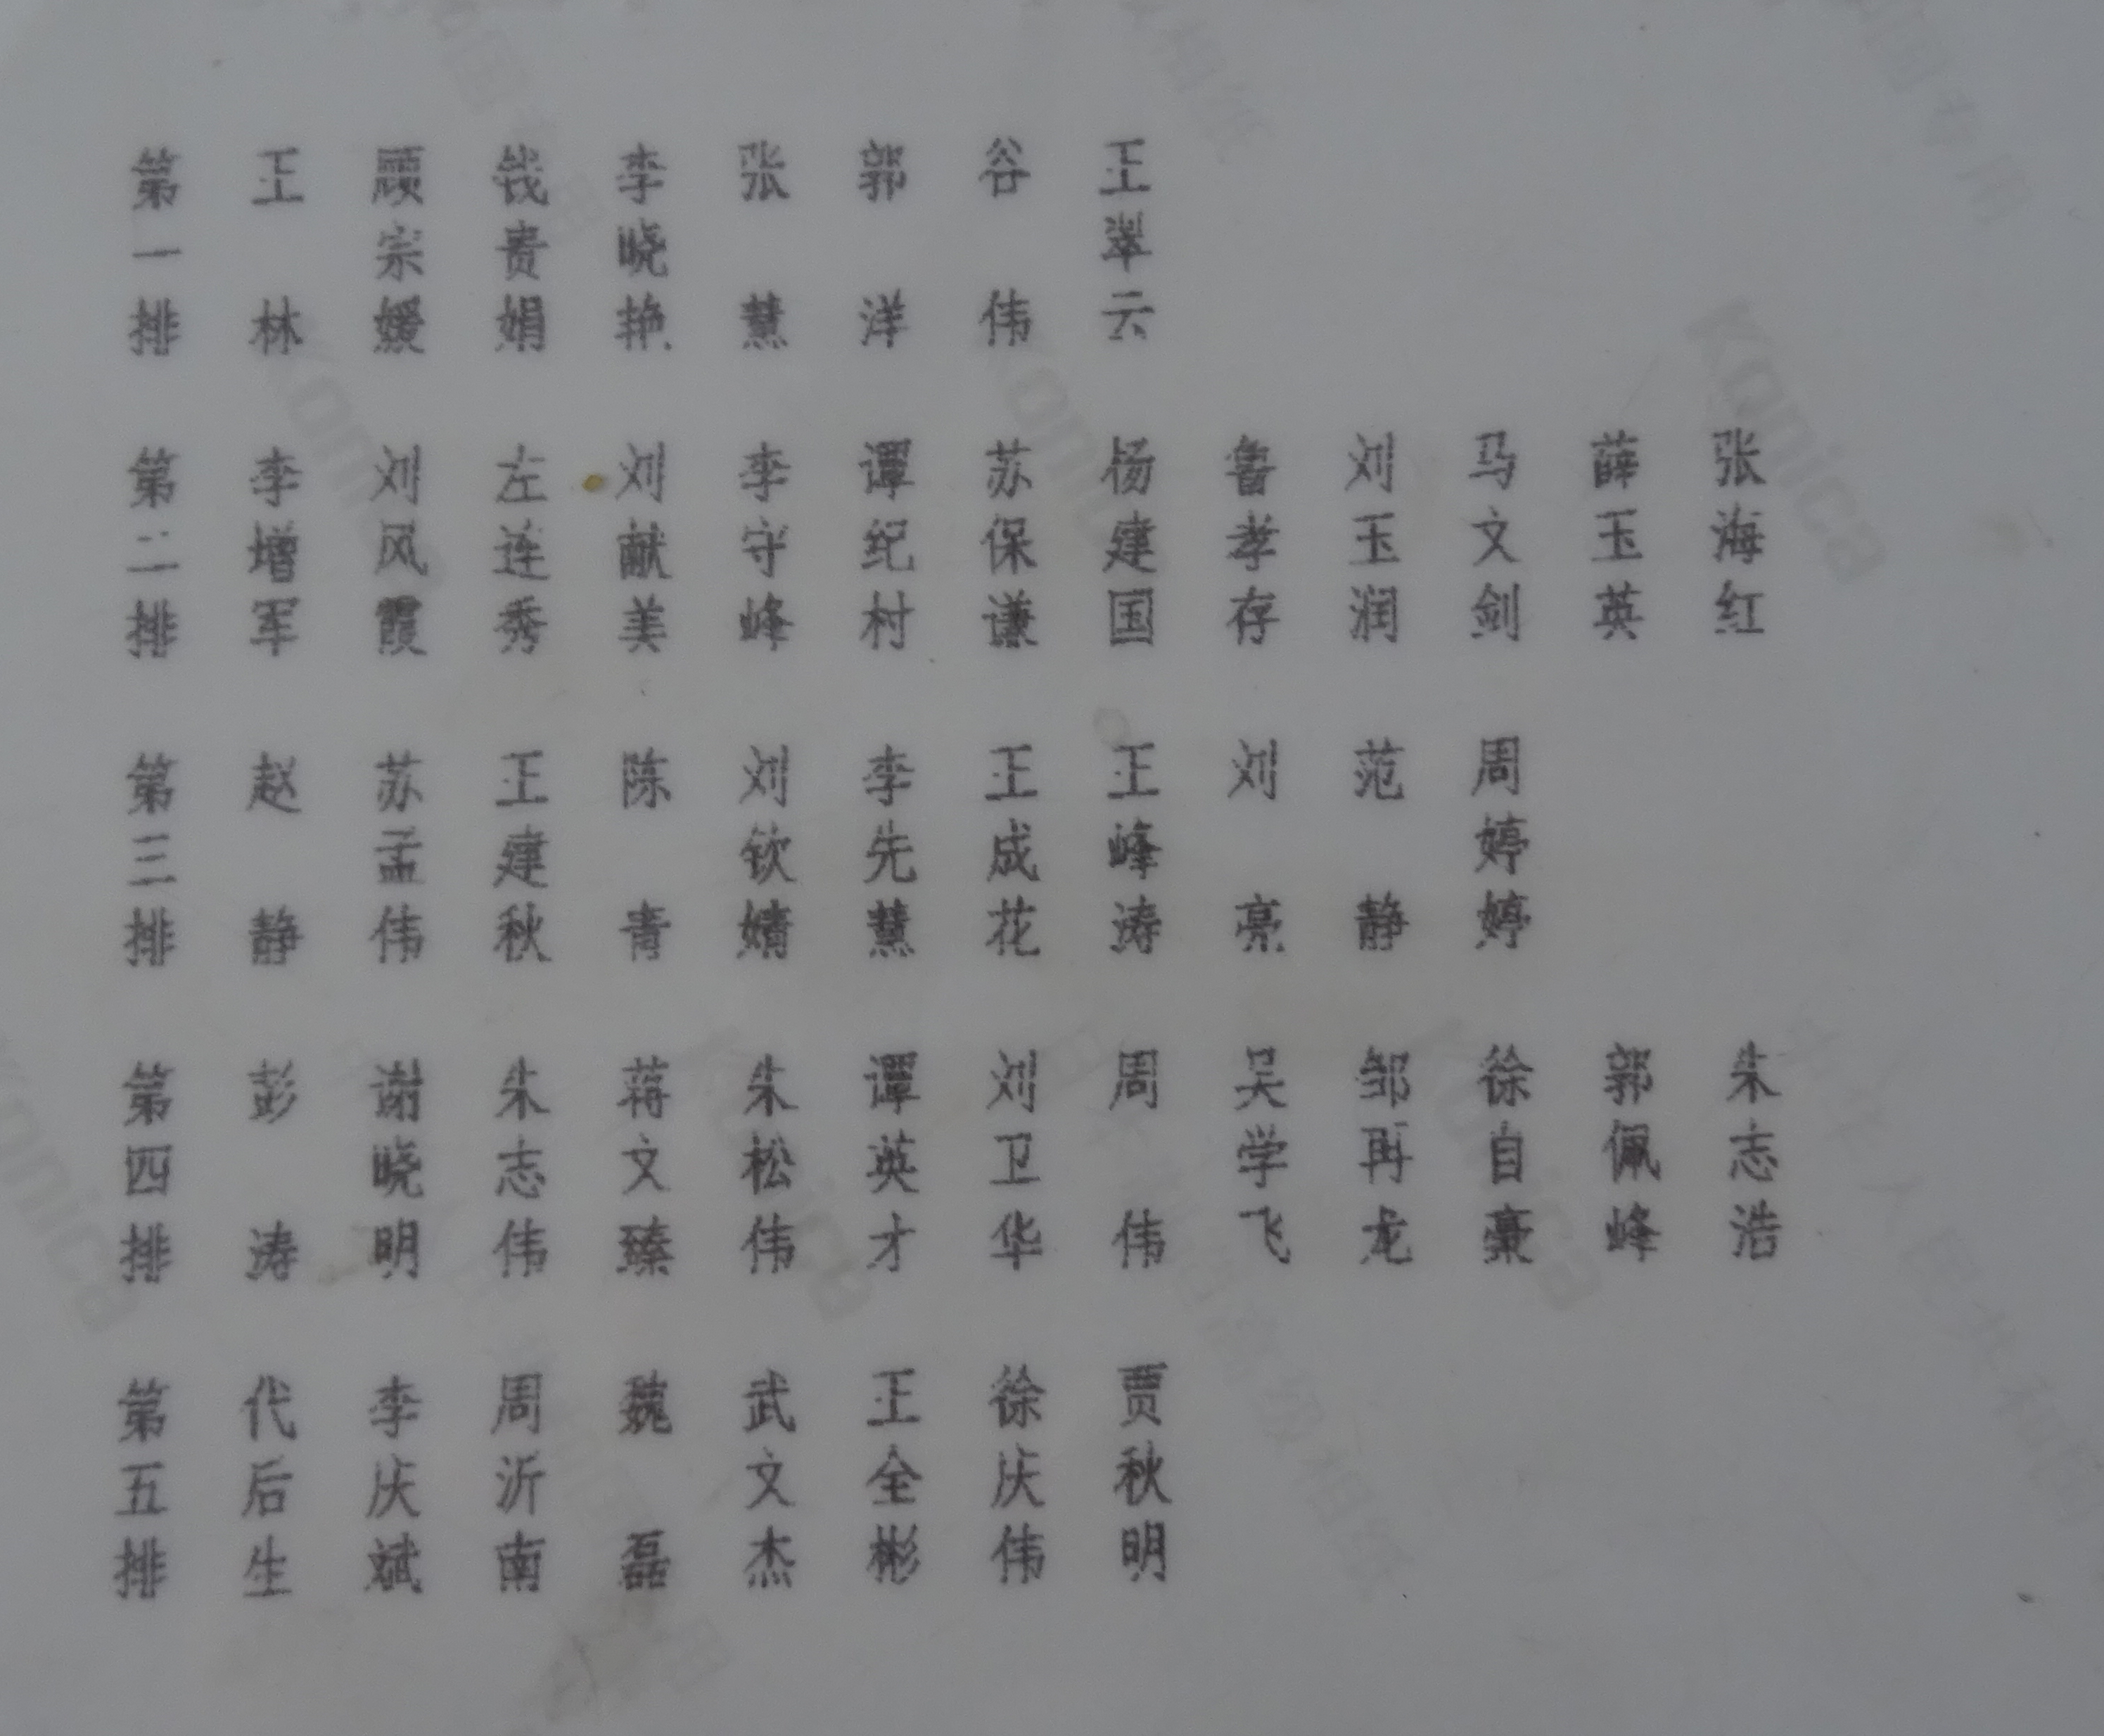 第一排 王林 顾宗媛 钱贵娟 李晓艳 张慧 郭洋 谷伟 王翠云
第二排 李增军 刘风霞 左连秀 刘献美 李守峰 谭纪村 苏保谦 杨建国 鲁孝存 刘玉润 马文剑 薛玉英 张海红
第三排 赵静 苏孟伟 王建秋 陈青 刘钦婧 李先慧 王成花 王峰涛 刘亮 范静 周婷婷
第四排 彭涛 谢晓明 朱志伟 蒋文臻 朱松伟 谭英才 刘卫华 周伟 吴学飞 邹再龙 徐自豪 郭佩峰 朱志浩
第五排 代后生 李庆斌 周沂南 魏磊 武文杰 王全彬 徐庆伟 贾秋明
Konica
Konica
Konica
Konica
Konica
Konica